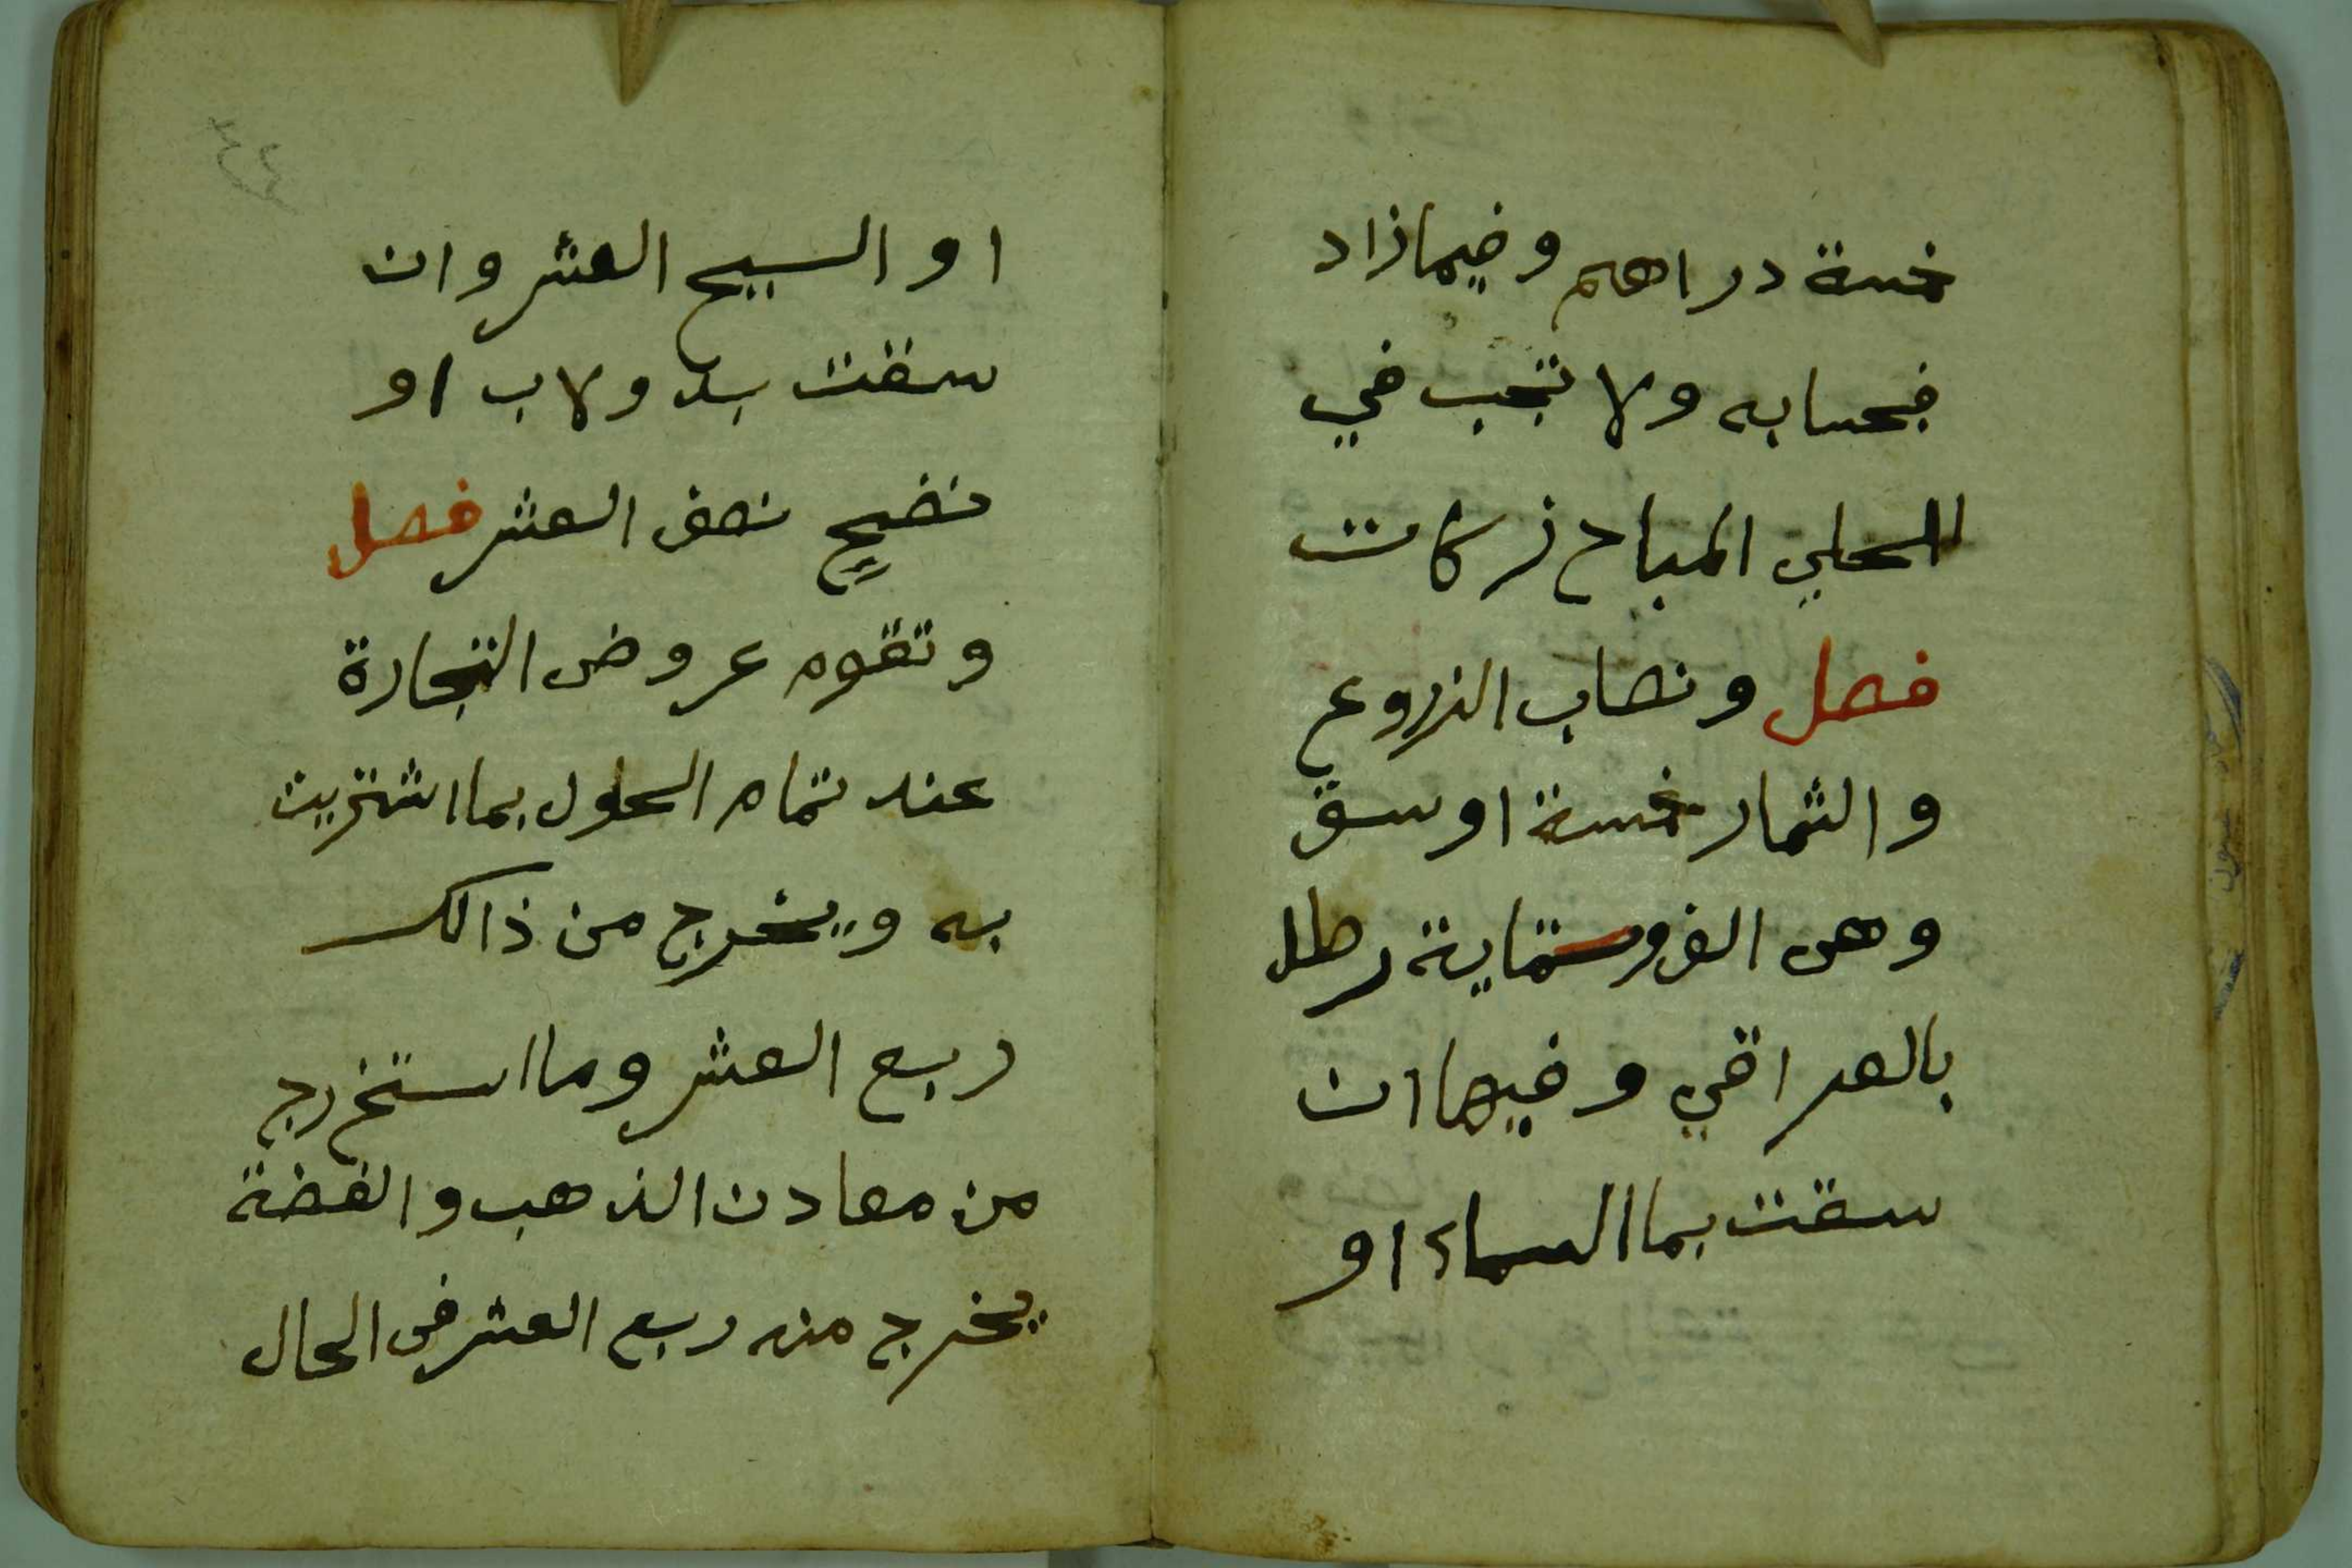 خمسة دراهم وفيما زاد
فبحسابه ولا تجب في
الحلي المباح زكات
فصل ونصاب الزروع
والثمار خمسة اوسق
وهى الف وستماية رطل
بالعراقي وفيها ان
سقت بما السماء او
او السيح العشر وان
سقت بدولاب او
نضح نصف العشر فصل
وتقوم عروض التجارة
عند تمام الحلول بما اشتريت
به ويخرج من ذالك
ربع العشر وما استخرج
من معادن الذهب والفضة
يخرج منه ربع العشر فى الحال